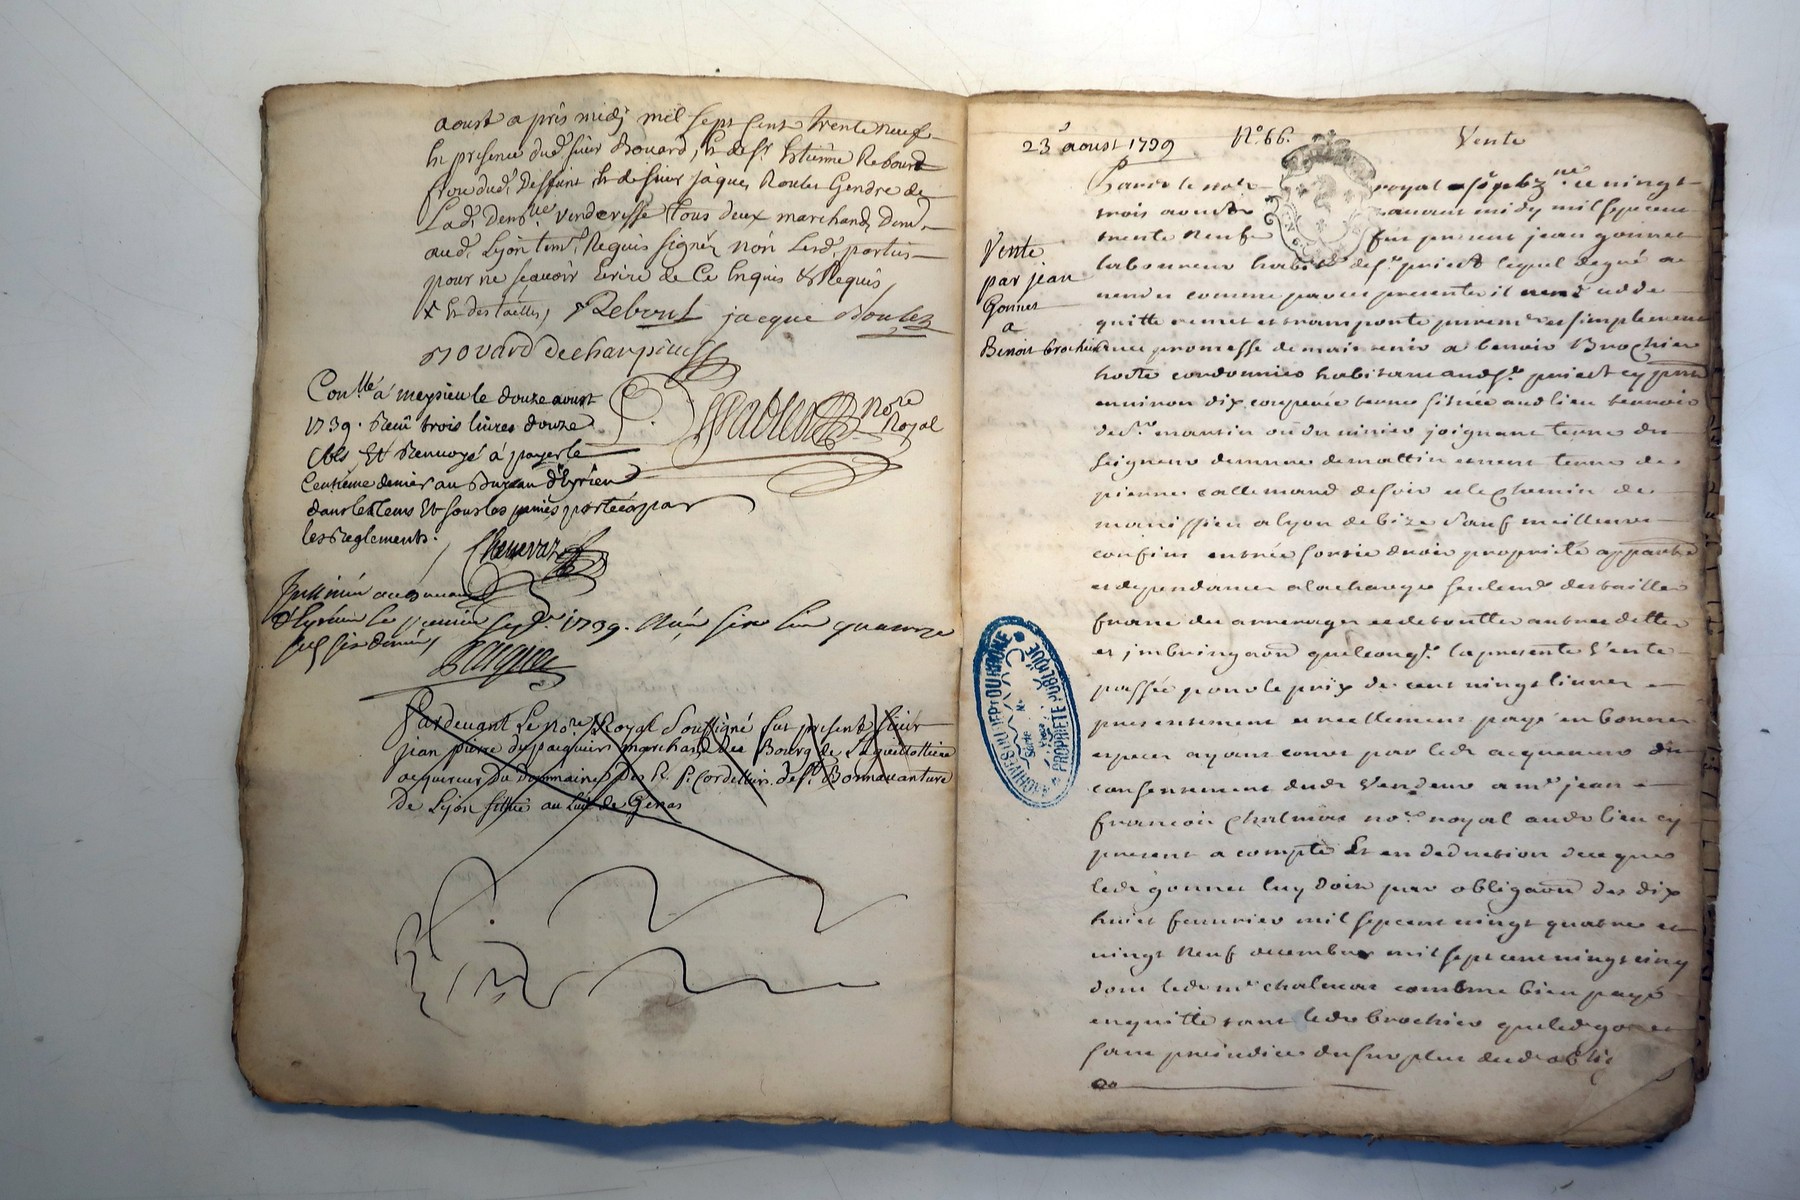 aoust après midy mil sept cent trente neuf
En presence dud. sieur Bouard, & de sr. Estienne Rebourt
frere dud. deffunt & de sieur jaques Roulet Gendre de
Lad. venderesse tous deux marchands dem.
aud. Lyon tem. Requis signez non Lesd. parties
pour ne scavoir Ecrire de Ce Enquis & Requis
Rebourt jacque Roulez
Bouard
nore
Royal
Con.llé à meysieu le douze aoust
1739. Receu trois livres douze
sols Et Renvoyé à payer le
Centieme denier au Bureau d'Eyrieu
dans le tems Et sous les peines portées par
les Reglements.
Insinué au Bureau
d'Eyrieu le sept. 1739. six quatorze
sols six deniers
Pardevant Le nore. Royal Soussigné fut present sieur
jean pierre marchand du Bourg de La guillottiere
acquereur du Domaine des R. P. Cordelliers de St. Bonnavanture
De Lyon situé au Lieu de Genas
23 aoust 1739 No. 66. Vente
Vente
par jean
Gonnet
a
Benoit brochier
Pardt le nore royal ce vingt
trois aoust avant midy mil sept cent
trente neuf fut present jean gonnet
laboureur lequel de gré a
vendu comme par ces presentes il vend cedde
quitte remet et transporte purem. et simplement
avec promesse de maintenir a benoit Brochier
hoste cordonnier habitant
environ dix couperée terre située aud lieu terroir
de st. martin ou du vivier joignant terre du
seigneur de matin et vent terre de
pierre callemard de soir et le chemin de
manissieu a lyon de bize sauf meilleurs
confins entrée sortie droit propriété
et dependances a la charge seulem. des tailles
franc des arrerages et de toutte autre dette
et quelconq. la presente Vente
passée pour le prix de cent vingt livres
presentement et reellement payé en bonnes
especes ayant cours par led acquereur du
consentement dud Vendeur a me jean
françois chalmas nore royal aud lieu cy
present a compte Et en deduction de ce que
led gonnet luy doit par obligaon des dix
huit fevrier mil sept cent vingt quatre et
vingt neuf decembre mil sept cent vingt cinq
dont led me chalmas comme bien payé
en quitte tant led brochier que led gonnet
sans prejudice du surplus dud oblig
aon
ARCHIVES DU DEPT DU RHONE
PROPRIETE PUBLIQUE